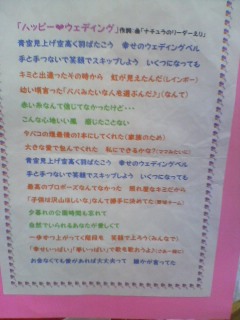 「ハッピー♥ウェディング」作詞・曲「ナチュラのリーダーまり」
青空見上げ空高く羽ばたこう 幸せのウェディングベル
手と手つないで笑顔でスキップしよう いくつになっても
キミと出逢ったその時から 虹が見えたんだ(レインボー)
幼い頃言った「パパみたいな人を選ぶんだ♪」(なんて)
赤い糸なんて信じてなかったけど・・・
こんな心地いい風 感じたことない
タバコの残最後の1本にしてくれた(家族のため)
大きな愛で包んでくれた 私にできるかな?(ママみたいに)
青空見上げ空高く羽ばたこう 幸せのウェディングベル
手と手つないで笑顔でスキップしよう いくつになっても
最高のプロポーズなんてなかった 照れ屋なキミだから
「子供は沢山ほしいな」なんて勝手に決めてた
夕暮れの公園時間も忘れて
自然でいられるあなたが愛しくて
一歩ずつ上がってく階段を 笑顔で上ろう(みんなで)
「幸せいっぱい」「夢いっぱい」で歌を歌おうよ♪
お金なくても愛があれば大丈夫って 誰かが言ってた